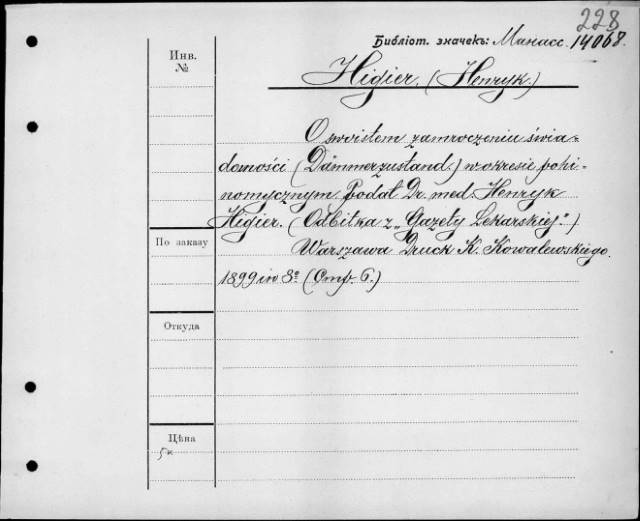 228
Библіот. значекъ: Манасс. 14068.
Инв.
№
Higier. (Henryk.)
O swoistem zamroczeniu świa-
domości (Dämmerzustand.) w okresie pohi-
nomycznym. Podał Dr. med. Henryk
Higier. (Odbitka z „Gazety Lekarskiej.")
По заказу
Warszawa Druck K. Kowalewskiego.
1899 in 8° (Стр. 6.)
Откуда
Цѣна
5к